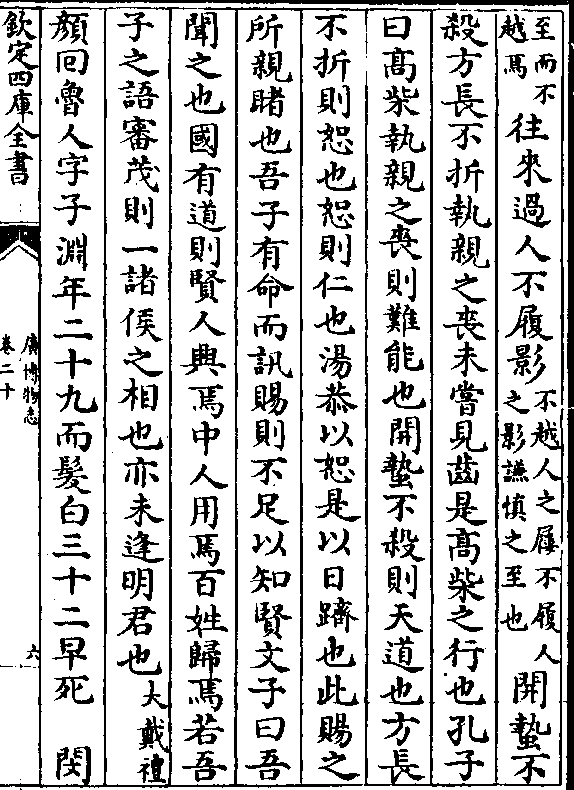 至而不
越焉
往來過人不履影
不越人之屨不履人
之影謙慎之至也
開蟄不
殺方長不折執親之喪未嘗見齒是髙柴之行也孔子
曰髙柴執親之喪則難能也開蟄不殺則天道也方長
不折則恕也恕則仁也湯恭以恕是以日躋也此賜之
所親睹也吾子有命而訊賜則不足以知賢文子曰吾
聞之也國有道則賢人興焉中人用焉百姓歸焉若吾
子之語審茂則一諸侯之相也亦未逢明君也
大戴禮
顔回魯人字子淵年二十九而髮白三十二早死　閔
欽定四庫全書
廣博物志
卷二十
六